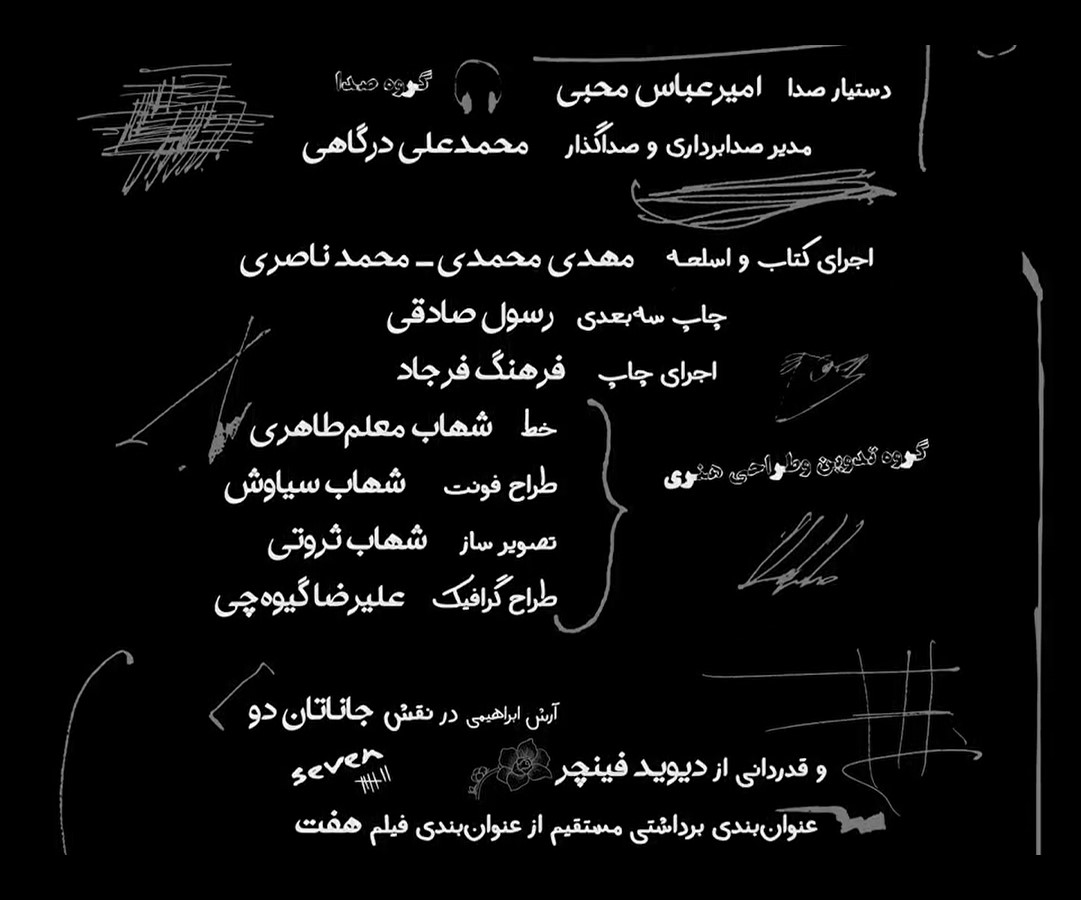 گروه صدا
دستیار صدا امیرعباس محبی
مدیر صدابرداری و صداگذار محمدعلی درگاهی
اجرای کتاب و اسلحه مهدی محمدی ـ محمد ناصری
چاپ سه‌بعدی رسول صادقی
اجرای چاپ فرهنگ فرجاد
گروه تدوین وطراحی هنری
خط شهاب معلم‌طاهری
طراح فونت شهاب سیاوش
تصویر ساز شهاب ثروتی
طراح گرافیک علیرضا گیوه‌چی
آرش ابراهیمی در نقش جاناتان دو
و قدردانی از دیوید فینچر
seven
عنوان‌بندی برداشتی مستقیم از عنوان‌بندی فیلم هفت